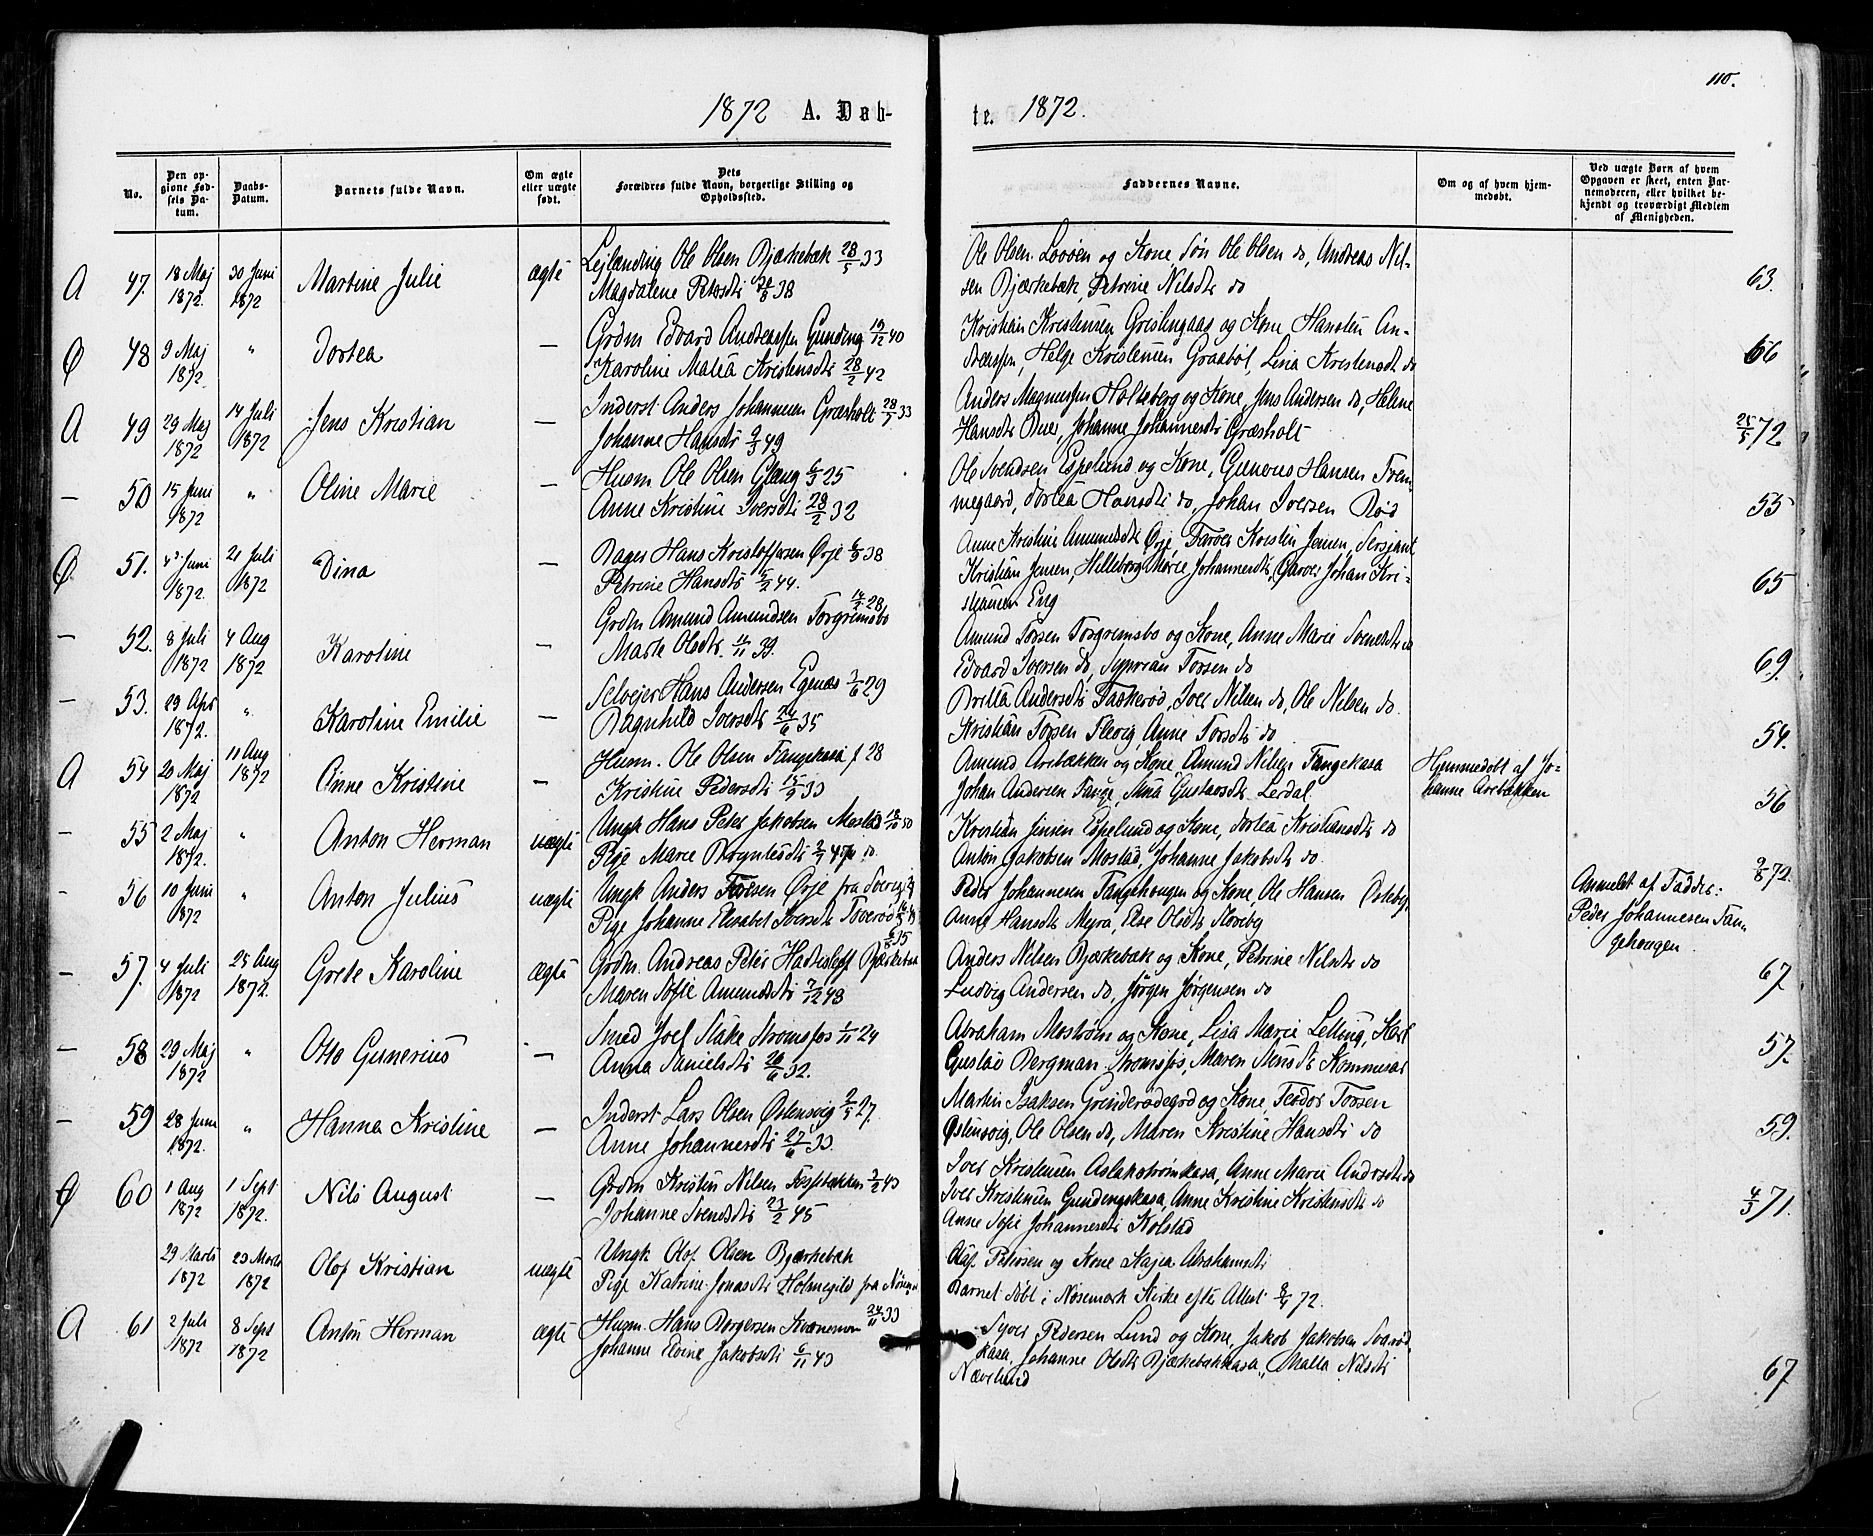 110.
1872 A. Døb-
te. 1872.
No.
Den op-
givne Fød-
sels Da-
tum.
Daabs-
Datum.
Barnets fulde Navn.
Om ægte
eller uægte
født.
Dets
Forældres fulde Navn, borgerlige Stilling og
Opholdssted.
Faddernes Navne.
Om og af hvem hjem-
medøbt.
Ved uægte Børn af hvem
Opgaven er skeet, enten Bar-
nemoderen, eller hvilket be-
kjendt og troværdigt Medlem
af Menigheden.
A 47. 18 Maj 1872. 30 Juni 1872 Martine Julie ægte
Lejlænding Ole Olsen Bjærkebæk 28/5 33
Magdalene Petersdtr 38
Ole Olsen og Kone, Søn Ole Olsen do, Andreas Nil-
sen Bjærkebæk, Petrine Nilsdtr do
63.
Ø 48 9 Maj 1872. " Dortea —
Grdm Edvard Andreassen Gunding 19/12 40
Karoline Matea Kristensdtr 28/2 42
Kristian Kristensen og Kone, An-
dreassen, Helge Kristensen Graabøl, Lisa Kristensdtr do
66
A 49 29 Maj 1872 14 Juli 1872 Jens Kristian —
Inderst Anders Johannesen Græsholt 28/7 33
Johanne Hansdtr 9/3 49
Anders Magnussen Holteberg og Kone, Jens Andersen do, Helene
Hansdtr Buer, Johanne Johannesdtr Græsholt
25/5 72
— 50 15 Juni 1872 " Oline Marie —
Husm Ole Olsen Glæng 6/3 25
Anne Kristine Iversdtr 28/2 32
Ole Svendsen Espelund og Kone, Gunerus Hansen Trem-
megaard, Dortea Hansdtr do, Johan Iversen Røid
55
Ø 51. 4 Juni 1872. 21 Juli 1872 Dina —
Bager Hans Kristoffersen Ørje 6/9 38
Petrine Hansdtr 44.
Anne Kristine Amundsdtr Ørje, Farver Kristen Jensen, Sersjant
Kristian Jensen, Helleborg Marie Johannesdtr, Garver Johan Kri-
stiansen Eng
65
— 52. 8 Juli 1872 4 Aug 1872 Karoline —
Grdm Amund Amundsen Torgrimsbo 28
Marte Olsdtr. 11/11 39.
Amund Torsen Torgrimsbo og Kone, Anne Marie Svendsdtr do
Edvard Iversen do, Torsen do
69.
— 53. 29 Apr 1872. " Karoline Emilie —
Selvejer Hans Andersen Egenæs 3/6 29
Ragnhild Iversdtr 24/6 35
Britta Andersdtr Taskerød, Iver Nilsen do, Ole Nilsen do.
Kristian Torsen Flevig Anne Torsdtr do
54.
A 54 20 Maj 1872 11 Aug 1872 Anne Kristine —
Husm. Ole Olsen Tangekasa f 28
Kristine Pedersdtr 15/9 33
Amund Arebækken og Kone, Amund Nilsen Tangekasa
Johan Andersen Tange, Mina Gustavsdtr Lerdal.
Hjemmedøbt af Jo-
hanne Arebækken
56
— 55 2 Maj 1872. " Anton Herman uægte
Ungk Hans Peter Jakobsen Mostad 18/10 50
Pige Marie Bryntesdtr 2/7 47 do.
Kristian Jensen Espelund og Kone, Dortea Kristiansdtr do
Anton Jakobsen Mostad, Johanne Jakobsdtr do.
9/8 72.
— 56 10 Juni 1872 " Anton Julius uægte
Ungk Anders Torsen Ørje fra Sverig
Pige Johanne Elisabet Iversdtr Tæverød
Peder Johannesen Tangehougen og Kone, Ole Hansen Osteby,
Anne Hansdtr Myra, Else Olsdtr Storeby
Anmeldt af Fadder:
Peder Johannesen Tan
gehougen
— 57. 4 Juli 1872 25 Aug 1872. Grete Karoline ægte
Grdm. Andreas Peter Hadtesloff Bjærkebæk 6/8 35
Maren Sofie Amundsdtr 7/12 48
Anders Nilsen Bjærkebæk og Kone, Petrine Nilsdtr do
Ludvig Andersen do, Jørgen Jørgensen do
67
— 58 20 Maj 1872 " Otto Gunerius —
Smed Joel Stake Strømsfos 1/11 24
Anna Danielsdtr 26/6 32.
Abraham Mostrøm og Kone, Lisa Maria Letting, Karl
Gustav Bergman Strømsfos, Maren Stensdtr Kommisar
57.
— 59 28 Juni 1872. " Hanna Kristine —
Inderst Lars Olsen Østensvig 9/5 27.
Anne Johannesdtr 27/6 33
Martin Isaksen Grinderødegrd og Kone, Teodor Torsen
Østensvig, Ole Olsen do, Maren Kristine Hansdtr do
59.
Ø 60 1 Aug 1872 1 Sept 1872. Nils August —
Grdm Kristen Nilsen Fossebækken 3/2 43
Johanne Svendsdtr 23/2 45
Iver Kristensen Aslakstrømkasa, Anne Maria Andersdtr do
Iver Kristensen Gundingskasa, Anne Kristine Kristensdtr do
Anne Sofie Johannesdtr Kolstad
4/3 71.
29 Marts 1872 23 Marts 1872 Olof Kristian uægte
Ungk Olof Olsen Bjærkebæk
Pige Katrine Jonasdtr Holmegild fra
Olof Petersen og Kone Kajsa Abrahamsdtr
Barnet døbt i Nøsemark Kirke efter Attest 9/4 72.
A 61 2 Juli 1872 8 Sept 1872 Anton Herman ægte
Husm. Hans Borgersen 24/11 33
Johanne Eline Jakobsdtr 6/11 43
Syver Pedersen Lund og Kone, Jakob Jakobsen Svarød
kasa, Johanne Olsdtr Bjærkebækkasa, Malla Nilsdtr
Næveslund
67